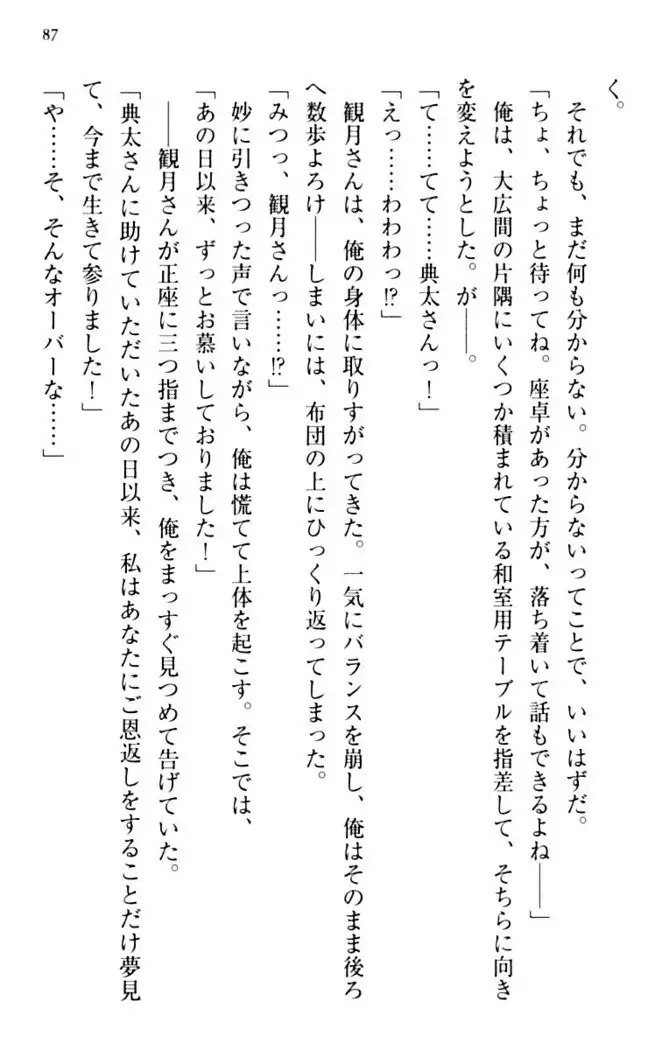 87
く。
それでも、まだ何も分からない。分からないってことで、いいはずだ。
「ちょ、ちょっと待ってね。座卓があった方が、落ち着いて話もできるよね――」
俺は、大広間の片隅にいくつか積まれている和室用テーブルを指差して、そちらに向き
を変えようとした。が――。
「て……てて……典太さんっ！」
「えっ……わわわっ⁉」
観月さんは、俺の身体に取りすがってきた。一気にバランスを崩し、俺はそのまま後ろ
へ数歩よろけ――しまいには、布団の上にひっくり返ってしまった。
「みつっ、観月さんっ……⁉」
妙に引きつった声で言いながら、俺は慌てて上体を起こす。そこでは、
「あの日以来、ずっとお慕いしておりました！」
――観月さんが正座に三つ指までつき、俺をまっすぐ見つめて告げていた。
「典太さんに助けていただいたあの日以来、私はあなたにご恩返しをすることだけ夢見
て、今まで生きて参りました！」
「や……そ、そんなオーバーな……」